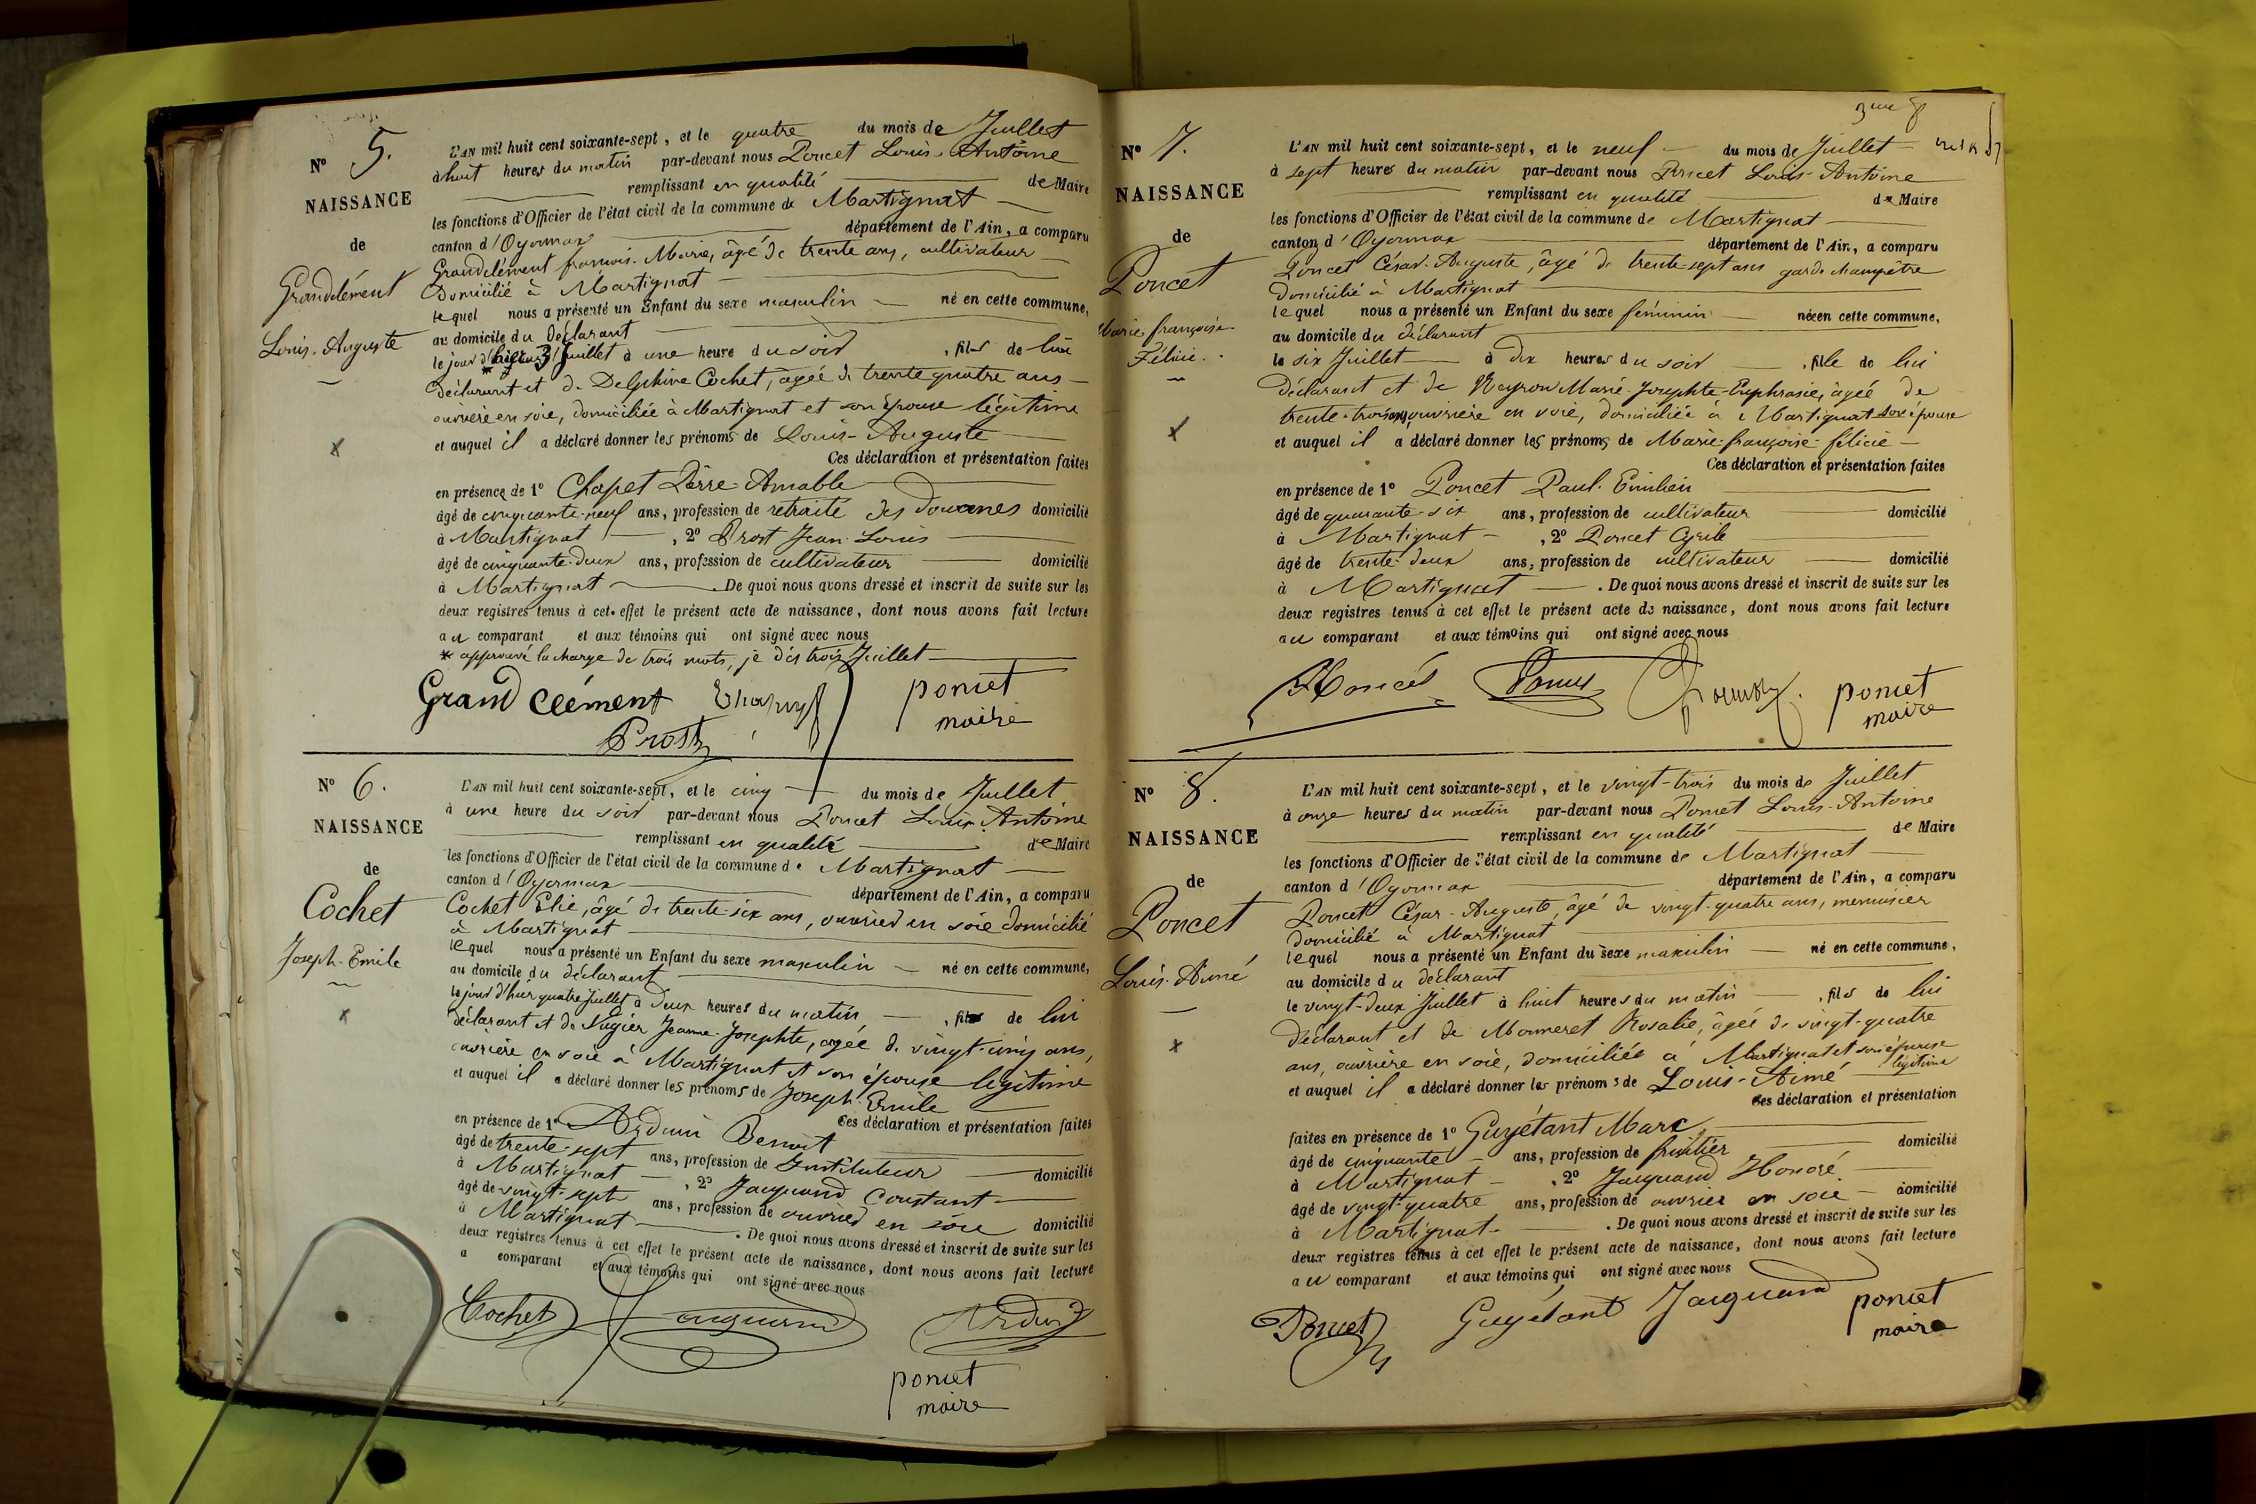 N° 5.
NAISSANCE
de
Grandclément
Louis-Auguste
L'AN mil huit cent soixante-sept, et le quatre du mois de Juillet
à huit heures du matin par-devant nous Poncet Louis-Antoine
remplissant en qualité de Maire
les fonctions d'Officier de l'état civil de la commune de Martignat
canton d'Oyonnax département de l'Ain, a comparu
Grandclément françois-Marie, âgé de trente ans, cultivateur
Domicilié à Martignat
lequel nous a présenté un Enfant du sexe masculin né en cette commune,
au domicile du déclarant
le jour d'hier 3 Juillet à une heure du soir, fils de lui
déclarant et de Delphine Cochet, agée de trente quatre ans
ouvrière en soie, domiciliée à Martignat et son épouse légitime
et auquel il a déclaré donner les prénoms de Louis-Auguste
Ces déclaration et présentation faites
en présence de 1° Chapet Pierre-Amable
âgé de cinquante-neuf ans, profession de retraité des Douanes domicilié
à Martignat, 2° Prost Jean-Louis
âgé de cinquante-deux ans, profession de cultivateur domicilié
à Martignat. De quoi nous avons dressé et inscrit de suite sur les
deux registres tenus à cet effet le présent acte de naissance, dont nous avons fait lecture
au comparant et aux témoins qui ont signé avec nous
* approuvé la charge de trois mots, je dis trois Juillet
Grandclément
Prost
poncet
maire
N° 6.
NAISSANCE
de
Cochet
Joseph-Emile
L'AN mil huit cent soixante-sept, et le cinq du mois de Juillet
à une heure du soir par-devant nous Poncet Louis-Antoine
remplissant en qualité de Maire
les fonctions d'Officier de l'état civil de la commune de Martignat
canton d'Oyonnax département de l'Ain, a comparu
Cochet Elie, âgé de trente-six ans, ouvrier en soie domicilié
à Martignat
lequel nous a présenté un Enfant du sexe masculin né en cette commune,
au domicile du déclarant
le jour d'hier quatre Juillet à deux heures du matin, fils de lui
déclarant et de Jeanne-Josephte, agée de vingt-cinq ans,
ouvrière en soie à Martignat et son épouse légitime
et auquel il a déclaré donner les prénoms de Joseph-Emile
Ces déclaration et présentation faites
en présence de 1° Arduin Benoit
âgé de trente-sept ans, profession de Instituteur domicilié
à Martignat, 2° Jacquand Constant
âgé de vingt-sept ans, profession de ouvrier en soie domicilié
à Martignat. De quoi nous avons dressé et inscrit de suite sur les
deux registres tenus à cet effet le présent acte de naissance, dont nous avons fait lecture
a comparant et aux témoins qui ont signé avec nous
Cochet Jacquand Arduin
poncet
maire
N° 7.
NAISSANCE
de
Poncet
Marie-françoise
Félicie.
L'AN mil huit cent soixante-sept, et le neuf du mois de Juillet
à sept heures du matin par-devant nous Poncet Louis-Antoine
remplissant en qualité de Maire
les fonctions d'Officier de l'état civil de la commune de Martignat
canton d'Oyonnax département de l'Ain, a comparu
Poncet César-Auguste, âgé de trente-sept ans garde champêtre
Domicilié à Martignat
lequel nous a présenté un Enfant du sexe féminin née en cette commune,
au domicile du déclarant
le six Juillet à dix heures du soir, fille de lui
déclarant et de Neyron Marie-Josephte-Euphrasie, âgée de
trente-trois ans, ouvrière en soie, domiciliée à Martignat son épouse
et auquel il a déclaré donner les prénoms de Marie-françoise-félicie
Ces déclaration et présentation faites
en présence de 1° Poncet Paul-Emilien
âgé de quarante-six ans, profession de cultivateur domicilié
à Martignat, 2° Poncet Cyrile
âgé de trente-deux ans, profession de cultivateur domicilié
à Martignat. De quoi nous avons dressé et inscrit de suite sur les
deux registres tenus à cet effet le présent acte de naissance, dont nous avons fait lecture
au comparant et aux témoins qui ont signé avec nous
Poncet Poncet
poncet
maire
N° 8.
NAISSANCE
de
Poncet
Louis-Aimé
L'AN mil huit cent soixante-sept, et le vingt-trois du mois de Juillet
à onze heures du matin par-devant nous Poncet Louis-Antoine
remplissant en qualité de Maire
les fonctions d'Officier de l'état civil de la commune de Martignat
canton d'Oyonnax département de l'Ain, a comparu
Poncet César-Auguste, âgé de vingt-quatre ans, menuisier
domicilié à Martignat
lequel nous a présenté un Enfant du sexe masculin né en cette commune,
au domicile du déclarant
le vingt-deux Juillet à huit heures du matin, fils de lui
déclarant et de Monneret Rosalie, âgée de vingt-quatre
ans, ouvrière en soie, domiciliée à Martignat et son épouse
légitime
et auquel il a déclaré donner les prénoms de Louis-Aimé
Ces déclaration et présentation
faites en présence de 1° Guyétant Marc
âgé de cinquante ans, profession de fruitier domicilié
à Martignat, 2° Jacquand Honoré
âgé de vingt-quatre ans, profession de ouvrier en soie domicilié
à Martignat. De quoi nous avons dressé et inscrit de suite sur les
deux registres tenus à cet effet le présent acte de naissance, dont nous avons fait lecture
au comparant et aux témoins qui ont signé avec nous
Poncet Guyétant Jacquand
poncet
maire